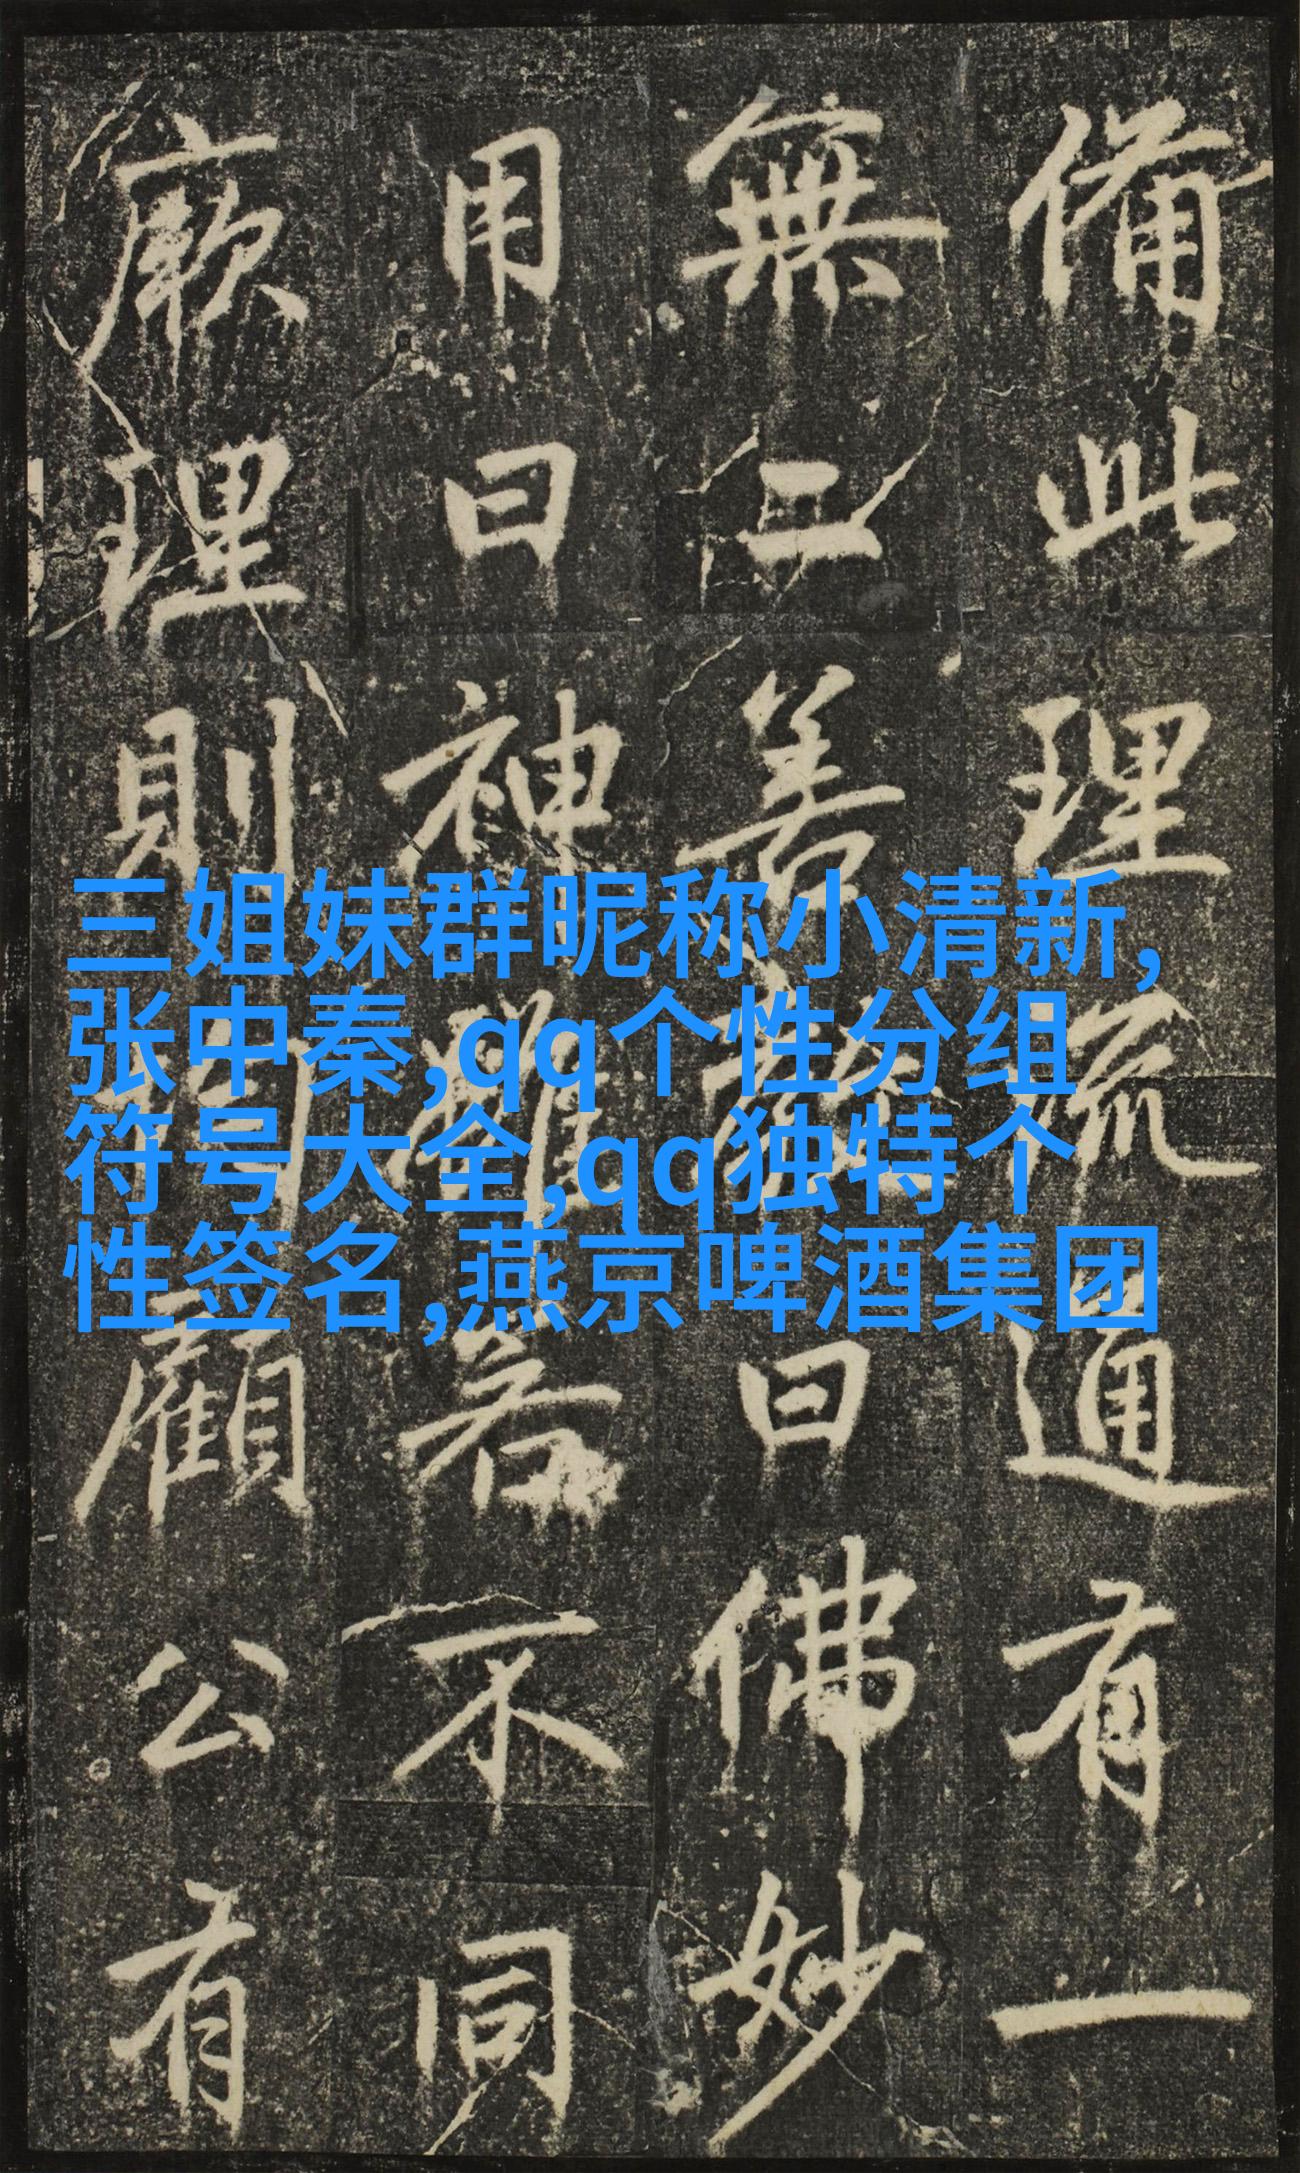 備此理流通有一
無二善曰佛妙
用曰神雖若不同
厥理則顧公有
三姐妹群昵称小清新,
张中秦,qq个性分组
符号大全,qq独特个
性签名,燕京啤酒集团